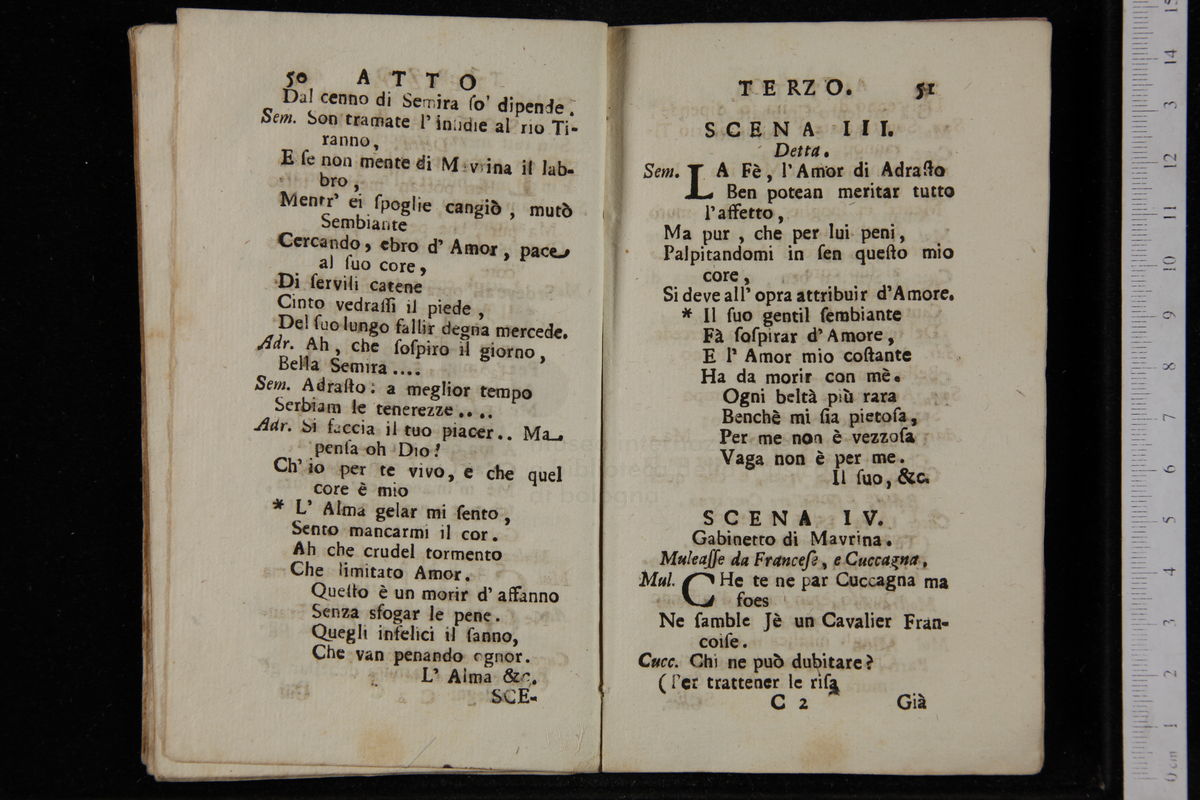 50 ATTO
Dal cenno di Semira ſo' dipende.
Sem. Son tramate l'inſidie al rio Ti-
ranno,
E ſe non mente di Mavrina il lab-
bro,
Mentr' ei ſpoglie cangiò, mutò
Sembiante
Cercando, ebro d'Amor, pace
al ſuo core,
Di ſervili catene
Cinto vedraſſi il piede,
Del ſuo lungo fallir degna mercede.
Adr. Ah, che ſoſpiro il giorno,
Bella Semira....
Sem. Adraſto: a meglior tempo
Serbiam le tenerezze....
Adr. Si faccia il tuo piacer.. Ma
penſa oh Dio!
Ch' io per te vivo, e che quel
core è mio
* L' Alma gelar mi ſento,
Sento mancarmi il cor.
Ah che crudel tormento
Che limitato Amor.
Queſto è un morir d' affanno
Senza sfogar le pene.
Quegli infelici il ſanno,
Che van penando ognor.
L' Alma &c.
SCE-
TERZO. 51
SCENA III.
Detta.
Sem. LA Fè, l'Amor di Adraſto
Ben potean meritar tutto
l'affetto,
Ma pur, che per lui peni,
Palpitandomi in ſen queſto mio
core,
Si deve all' opra attribuir d'Amore.
* Il ſuo gentil ſembiante
Fà ſoſpirar d'Amore,
E l' Amor mio coſtante
Ha da morir con mè.
Ogni beltà più rara
Benchè mi ſia pietoſa,
Per me non è vezzoſa
Vaga non è per me.
Il ſuo, &c.
SCENA IV.
Gabinetto di Mavrina.
Muleaſſe da Franceſe, e Cuccagna.
Mul. CHe te ne par Cuccagna ma
foes
Ne ſamble Jè un Cavalier Fran-
coiſe.
Cucc. Chi ne può dubitare?
(Per trattener le riſa
C 2 Già